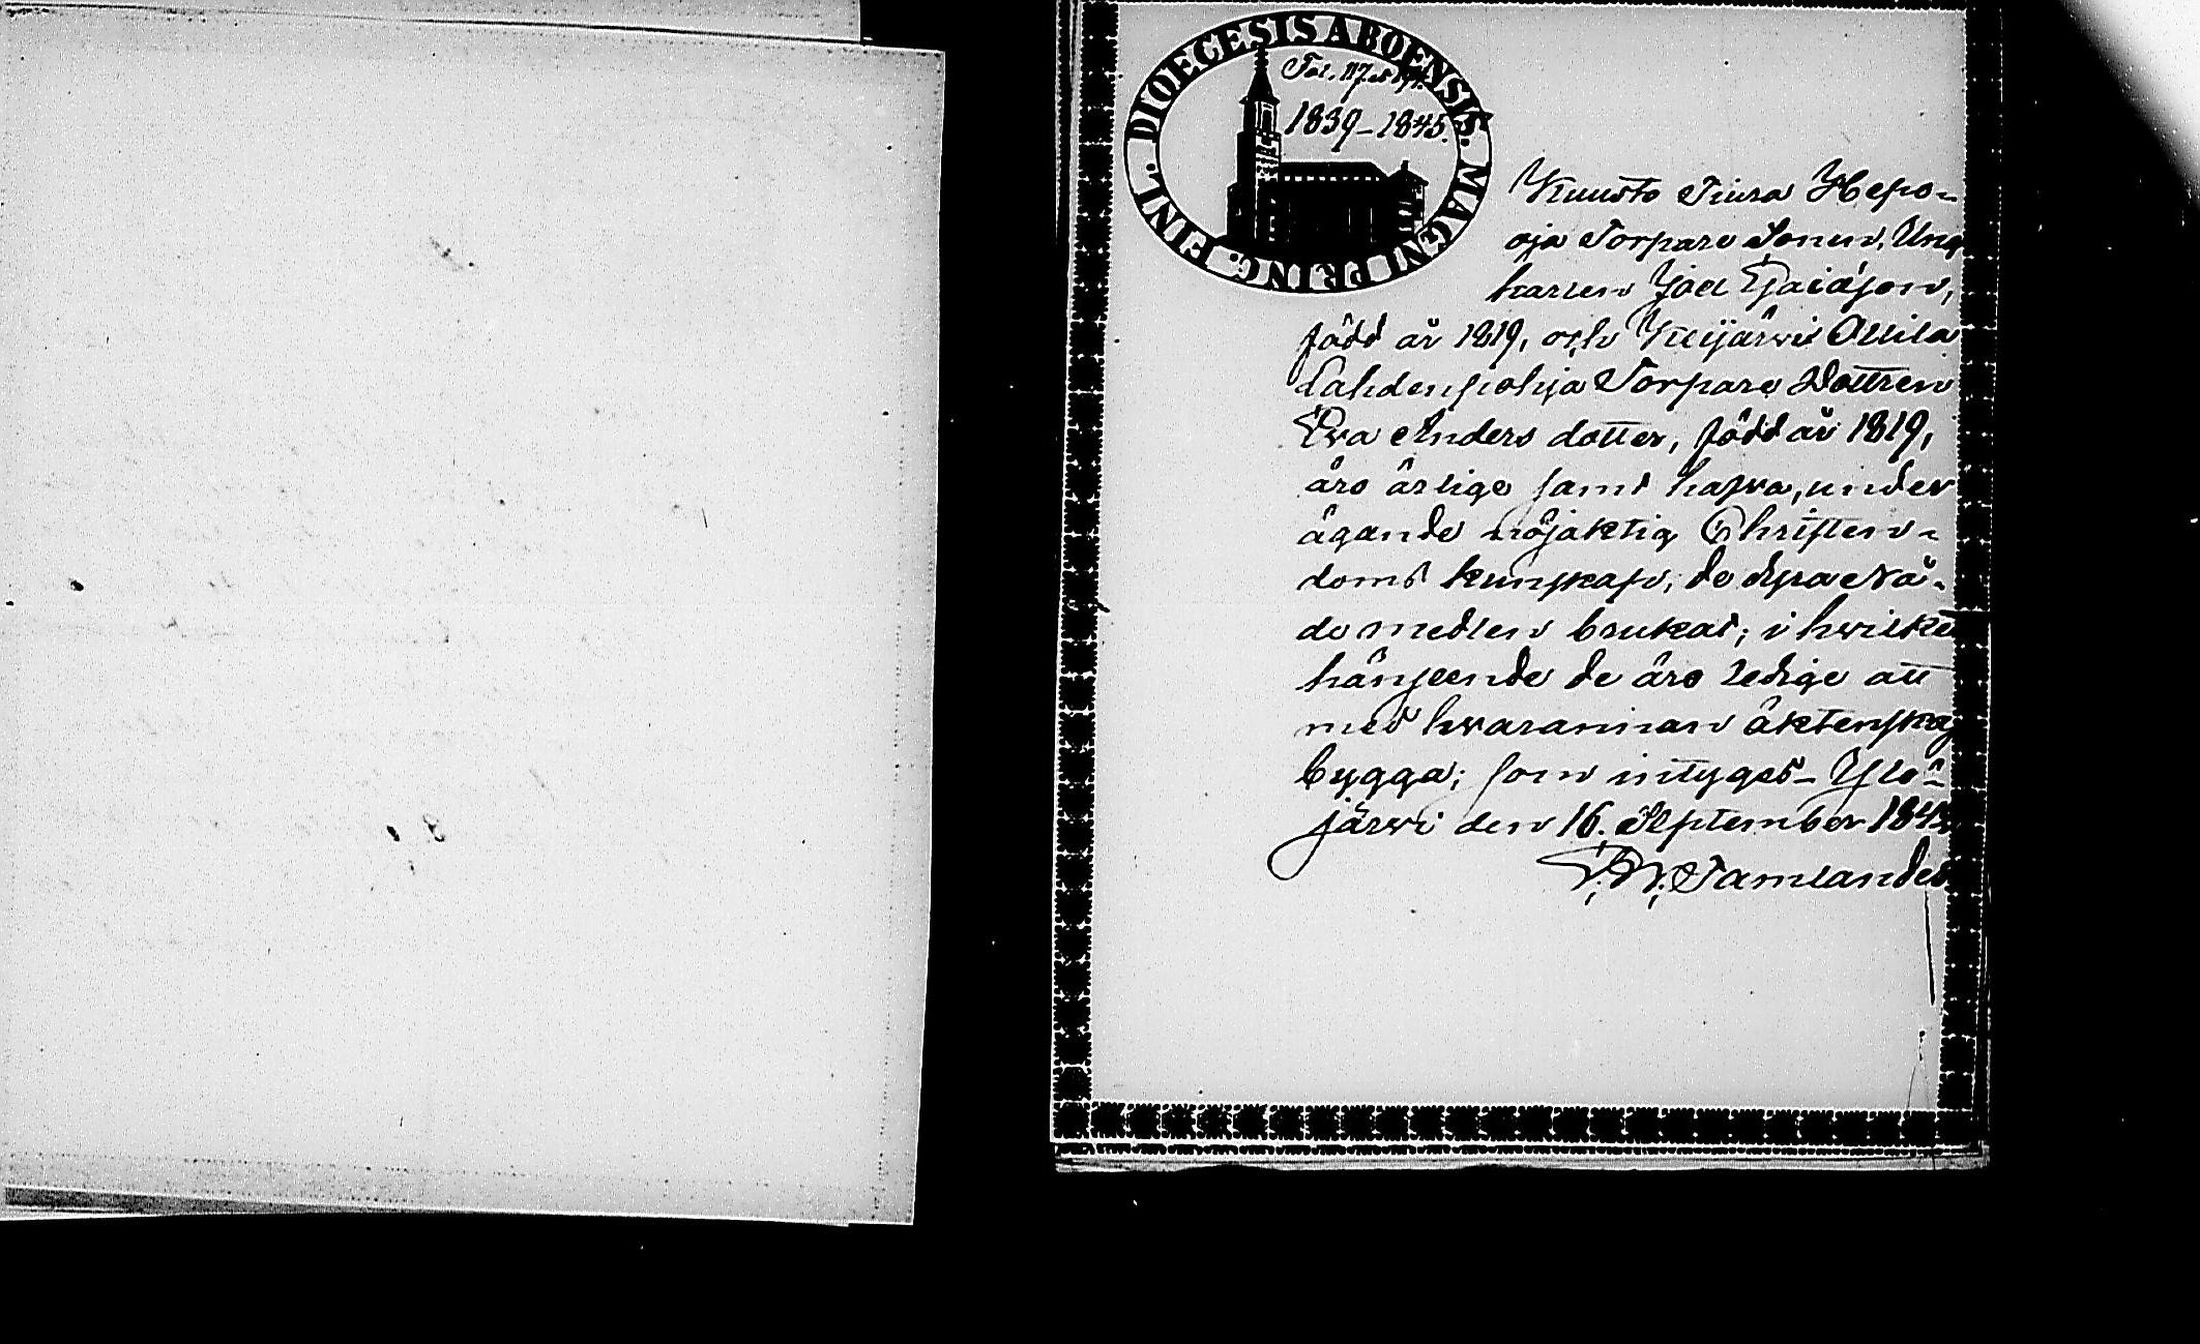 DIOECESIS ABOENSIS. MAGNI PRINC. FINL.
Fol. 117
1839-1845.
Kuusto Tiura Hepo-
oja Torpare Sonen, Ung
karlen Joel Esaiæson,
född år 1819, och Keijärwi Ollila
Lahdenpohja Torpare Dottren
Eva Anders dotter, född år 1819,
äro ärlige samt hafva, under
ägande nöjaktig Christen-
doms kunskap, de dyra Nå-
de medlen brukat; i hwilket
hänseende de äro ledige att
med hwarannan äktenskap
bygga; som intygas_ Ylö-
järwi den 16. September 184
Tamlander